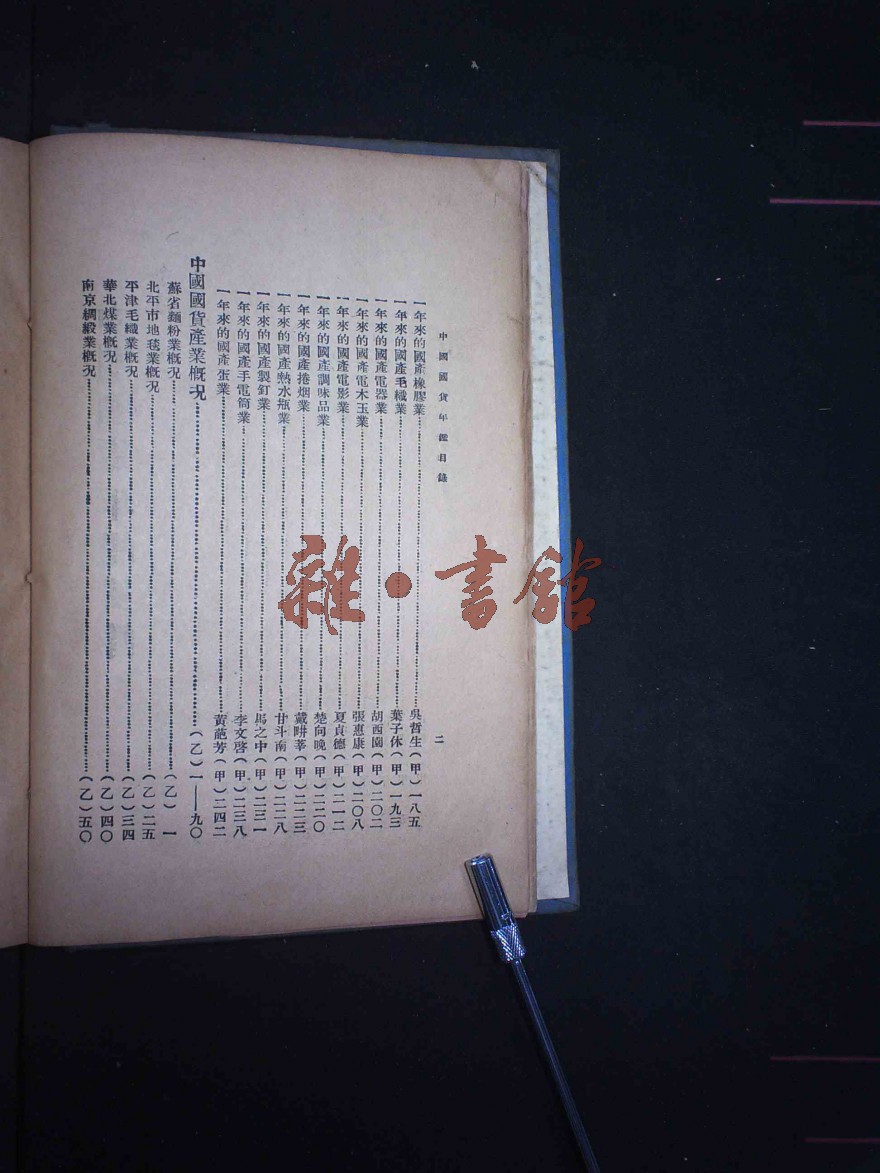 中國國貨年鑑目錄
二
一年來的國產橡膠業 吳哲生(甲)一八五
一年來的國產毛織業 葉子休(甲)一九三
一年來的國產電器業 胡西園(甲)二〇二
一年來的國產電木玉業 張惠康(甲)二〇八
一年來的國產電影業 夏貞德(甲)二一二
一年來的國產調味品業 楚向晚(甲)二二〇
一年來的國產捲烟業 戴畊莘(甲)二二三
一年來的國產熱水瓶業 甘斗南(甲)二二八
一年來的國產製釘業 之中(甲)二三一
一年來的國產手電筒業 李文啓(甲)二三八
一年來的國產蛋業 黃葩芳(甲)二四二
中國國貨產業概況 (乙)一——九〇
蘇省麵粉業概況 (乙)一
北平市地毯業概況 (乙)二五
平津毛織業概況 (乙)三四
華北煤業概況 (乙)四〇
南京綢緞業概況 (乙)五〇
雜·書館